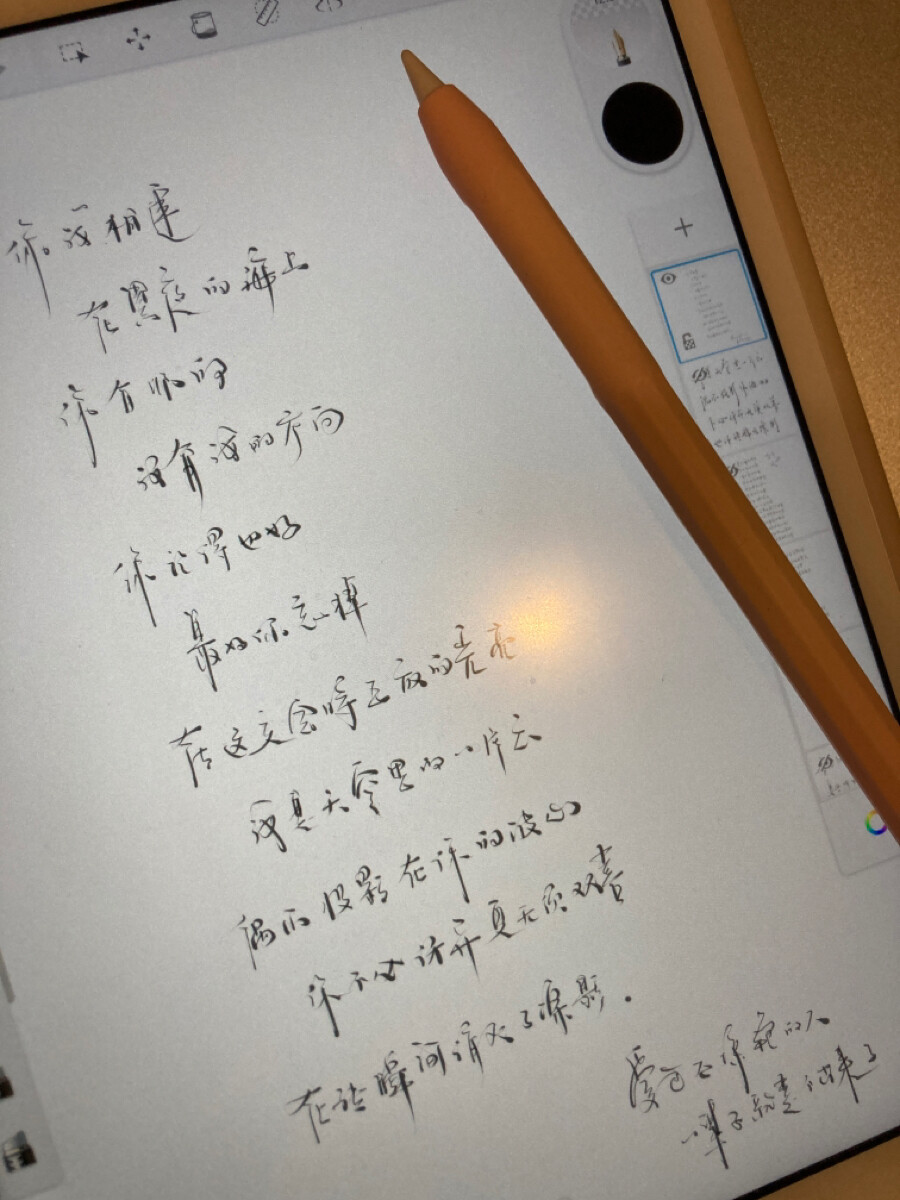 你我相逢
在黑夜的海上
你有你的
我有我的方向
你记得也好
最好你忘掉
在这交会时互放的光亮
我是天空里的一片云
偶而投影在你的波心
你不必讶异更无须欢喜
在这瞬间消灭了踪影.
的人
一辈子就